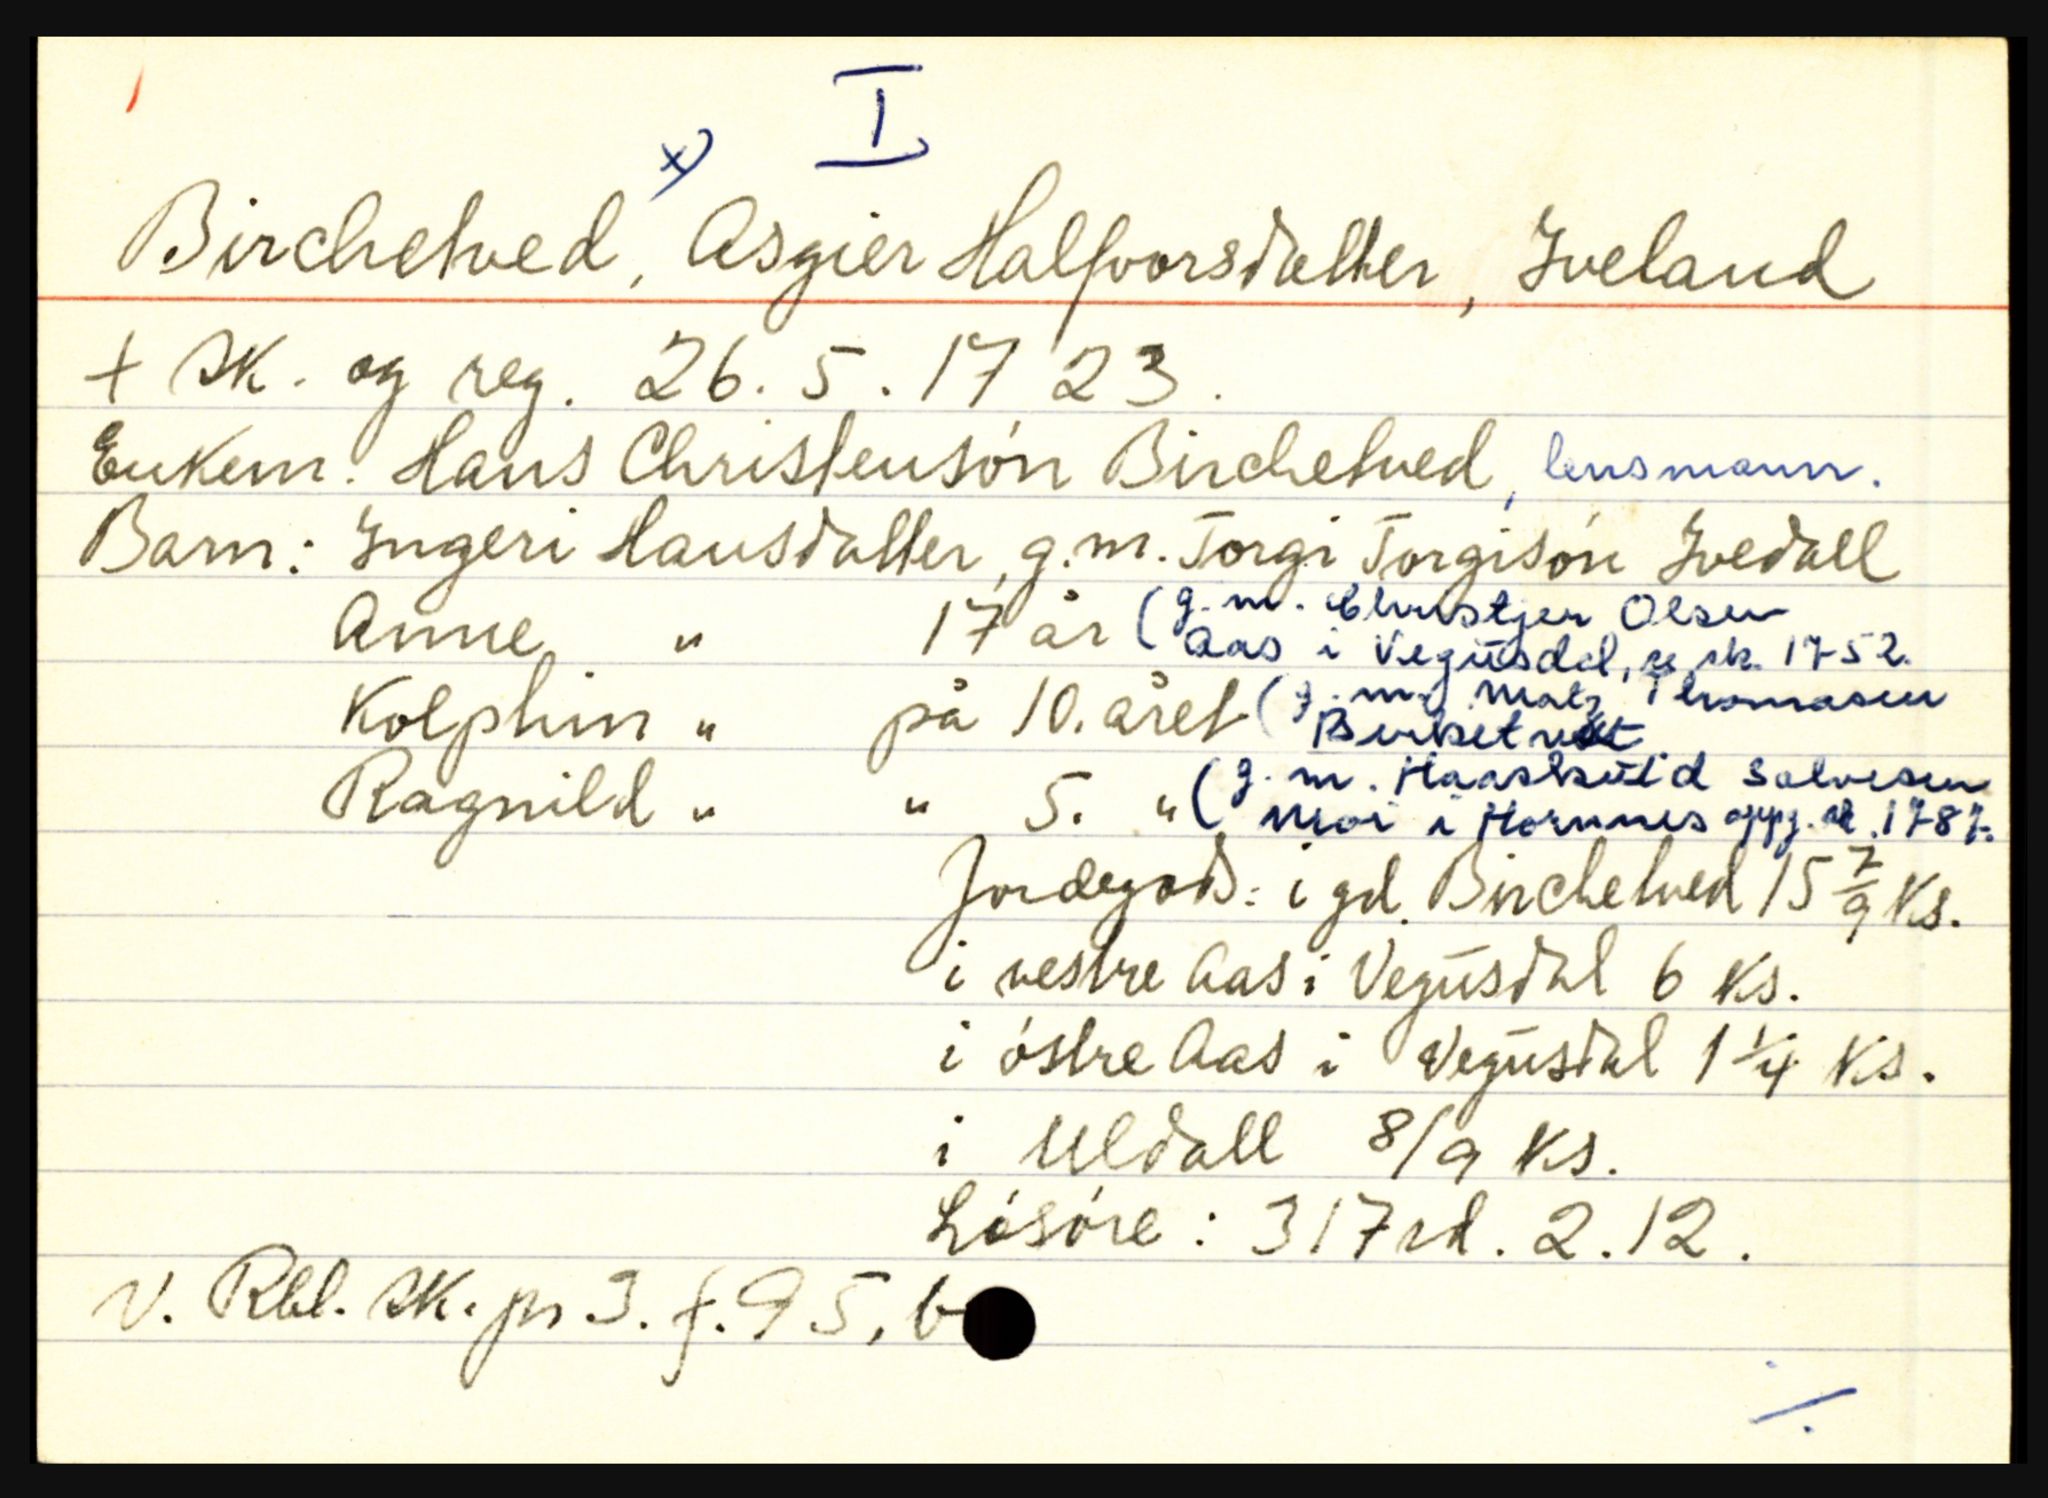 I
x)
Birchetved, Asgier Halfvorsdatter, Iveland
+ sk. og reg. 26. 5. 1723.
Enkem. Hans Christensón Birchetved, lensmann.
Barn: Ingeri Hansdatter, g.m. Torgi Torgisón Ivedall
Anne " 17 år (g.m. Christjen Olsen
Aas i Vegusdal, se sk. 1752.
Kolphin " på 10. året (g.m. Matz Thomasen
Birketvet
Ragnild " " 5. " (g.m. Haaskuld Salvesen
Moi i Hornnes oppg. sk. 1787.
Jordegods: i gd. Birchetved 15 7/9 Ks.
i vestre Aas i Vegusdal 6 Ks.
i óstre Aas i Vegusdal 1 1/4 Ks.
i Uldall 8/9 Ks.
Lósóre: 317 rd. 2. 12.
V. Rbl. sk. pr 3. f. 95, b